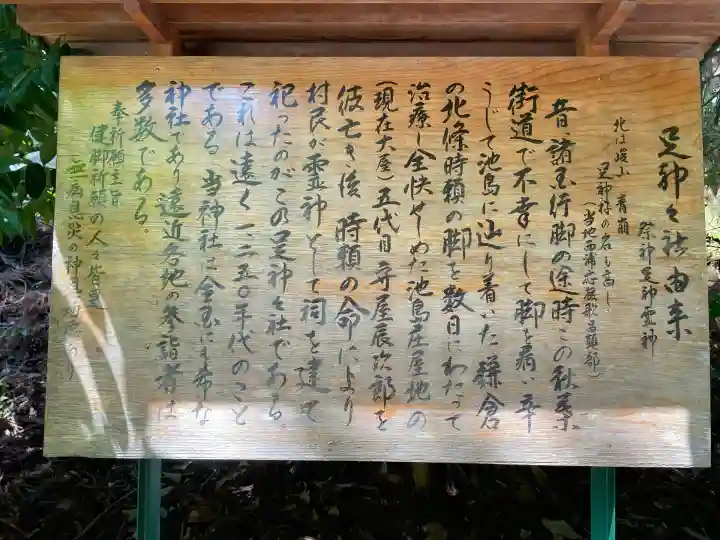 足神々社由来
祭神足神霊神
北は
足神様の名も高し
昔、諸国行脚の途時この秋葉
街道で不幸にして脚を病い辛
うじて池島に辿り着いた鎌倉
の北條時頼の脚を数日にわたって
治療し全快せしめた池島庄屋地の
(現在大屋)五代目守屋辰次郎を
彼亡き後時頼の命により
村民が霊神として祠を建て
祀ったのがこの足神々社である。
これは遠く一二五〇年代のこと
である。当神社は全国にも希な
神社であり遠近各地の参詣者は
多数である。
奉祈願主旨
健脚祈願の人々皆足
無病息災の神